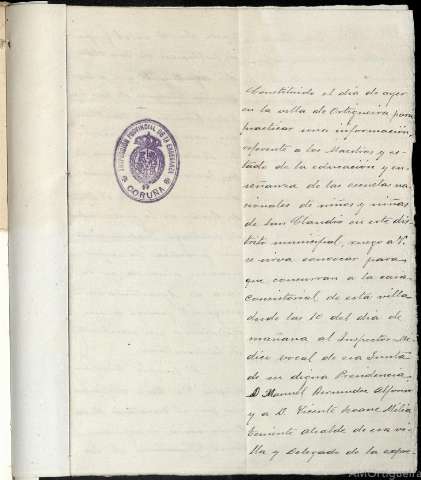 INSPECCIÓN PROVINCIAL DE LA ENSEÑANZA
CORUÑA
Constituido el dia de ayer
en la villa de Ortigueira para
practicar una información
referente a los Maestros y es-
tado de la educación y en-
señanza de las escuelas na-
cionales de niños y niñas
de San Claudio en este dis-
trito municipal, ruego a V.
se sirva convocar para
que concurran a la casa
Consistorial de esta villa
desde las 10 del dia de
mañana al Inspector Mé-
dico vocal de esa Junta
de su digna Presidencia,
D Manuel Bermudez Alfonsin
y a D. Vicente Seoane
Teniente Alcalde de esa vi-
lla y Delegado de la expre-
AMOrtigueira